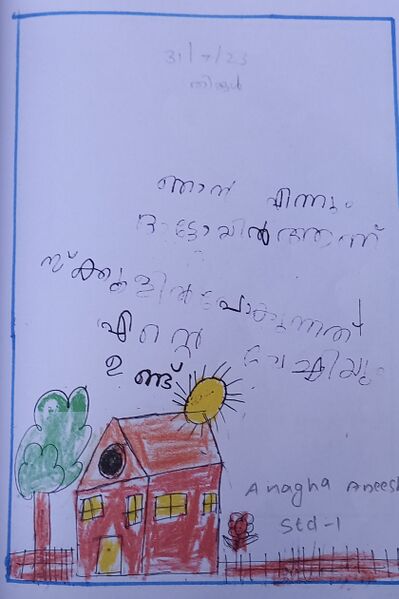 31/7/23
തിങ്കൾ
ഞാൻ എന്നും
ഓട്ടോയിൽ ആണ്
സ്ക്കൂളിൽ പോകുന്നത്
എന്റെ ചേച്ചിയും
ഉണ്ട്
Anagha Aneesh
Std-1